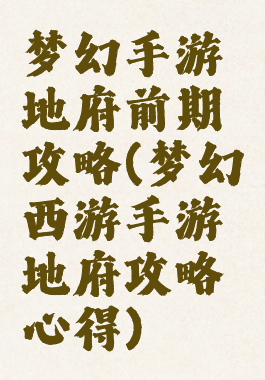 梦幻手游
地府前期
攻略(梦幻
西游手游
地府攻略
心得)